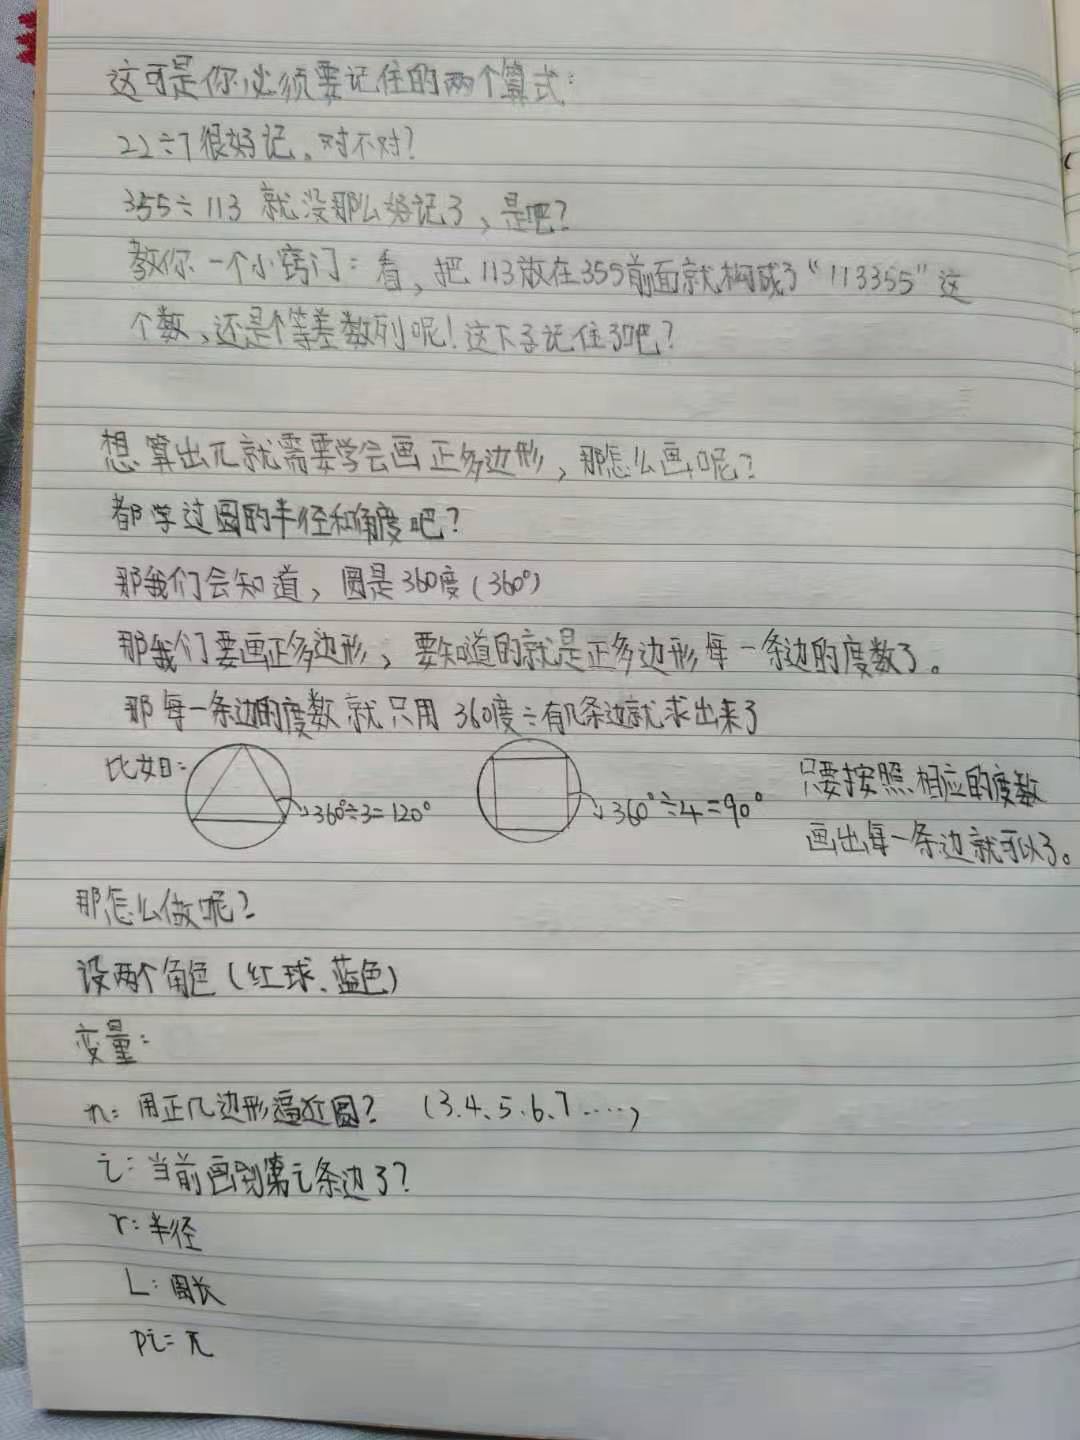 这可是你必须要记住的两个算式：
22÷7很好记。对不对？
355÷113 就没那么好记了，是吧？
教你一个小窍门：看，把113放在355前面就构成了“113355”这
个数，还是个等差数列呢！这下子记住了吧？
想算出π就需要学会画正多边形，那怎么画呢？
都学过圆的半径和角度吧？
那我们会知道，圆是360度（360°）
那我们要画正多边形，要知道的就是正多边形每一条边的度数了。
那每一条边的度数就只用360度÷有几条边就求出来了
比如：
360°÷3=120°
360°÷4=90°
只要按照相应的度数
画出每一条边就可以了。
那怎么做呢？
设两个角色（红球、蓝色）
变量：
n：用正几边形逼近圆？（3.4、5、6、7……，
i：当前画到第i条边了？
r：半径
L：周长
pi=π